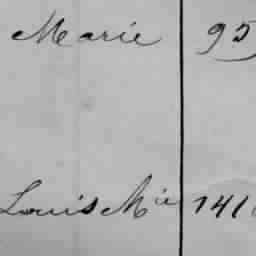 Marie 95
Louis Mie 141